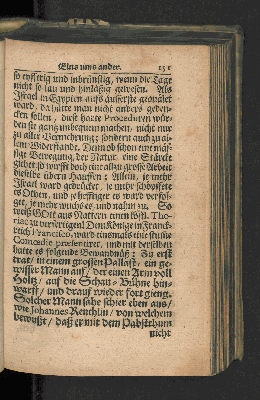 Eins ums ander. 151
so eyfferig und inbrünstig, wenn die Tage
nicht so lau und hinläßig gewesen. Als
Israel in Egypten aufs äusserste gequälet
ward, da hätte man nicht anders geden-
cken sollen, diese harte Proceduren wür-
den sie gantz unbequem machen, nicht nur
zu aller Vermehrung; sondern auch zu al-
lem Widerstande. Denn ob schon eine mäs-
sige Bewegung der Natur eine Stärcke
giebet, so wirfft doch ein allzu grosse Arbeit
dieselbe übern Hauffen: Allein, je mehr
Israel ward gedrücket, je mehr schössete
es Ohren, und je hefftiger es ward verfol-
get, je mehr wuchs es, und nahm zu. So
weiß GOtt aus Nattern einen
riac zu verfertigen! Dem Könige in Franck-
reich Francisco, ward einsmals eine stille
Comœdie præsentiret, und mit derselben
hatte es folgende Bewandnüß: Zu erst
trat/ in einem grossen Pallast/ ein ge-
wisser Mann auf/ der einen Arm voll
Holtz/ auf die Schau-Bühne hin-
warff/ und drauf wieder fort gieng.
Solcher Mann sahe schier eben aus/
wie Johannes Reuchlin/ von welchem
bewußt/ daß er mit dem Pabstthum
nicht